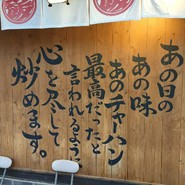 あの日の
あの味
あのチャーハン
最高だったと
言われるように
心を尽して
炒めます。